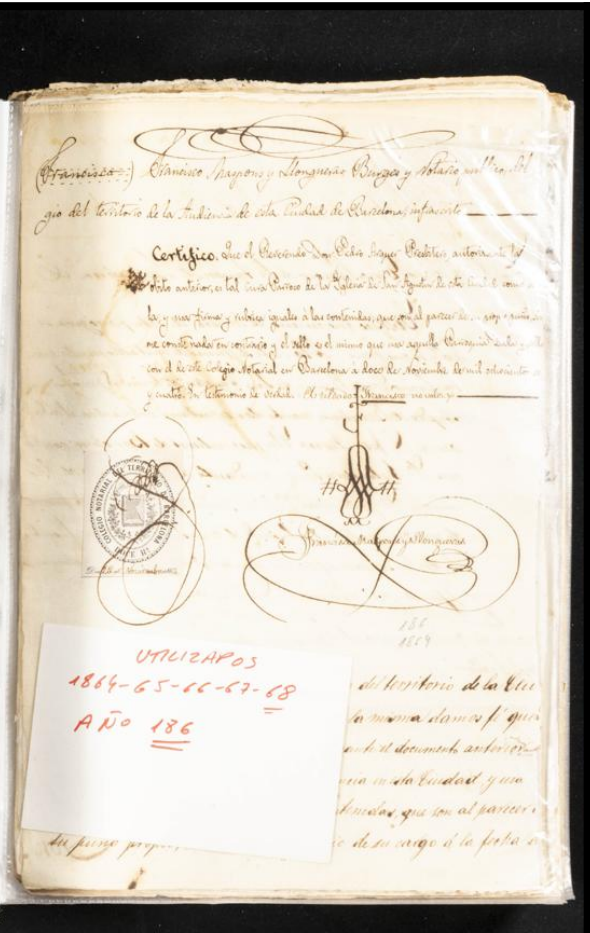 (Francisco:) Francisco Maymo y Llongueras Burges y Notario publico, Cole
gio del territorio de la Audiencia de esta Ciudad de Barcelona, infrascrito
Certifico. Que el Reverendo Don Pedro Presbitero, autorizante del
óbito anterior, es tal Cura Parroco de la Iglesia de San Agustin de esta Ciudad como
la, y que firma y rubrica iguales á las contenidas, que son al parecer de su propio puño, sin
cosa en contrario y el sello es el mismo que usa aquella Parroquia.
con el de este Colegio Notarial en Barcelona á doce de Noviembre de mil ochocientos
y cuatro. En testimonio de verdad. Francisco no vale
COLEGIO NOTARIAL DEL TERRITORIO DE BARCELONA
Francisco Maymo y Llongueras
186
1864
UTILIZADOS
1864-65-66-67-68
AÑO 186
del territorio de la Au
la misma damos fé que
el documento anterior
en esta Ciudad, y usa
que son al parecer
su puño propio, de su cargo á la fecha